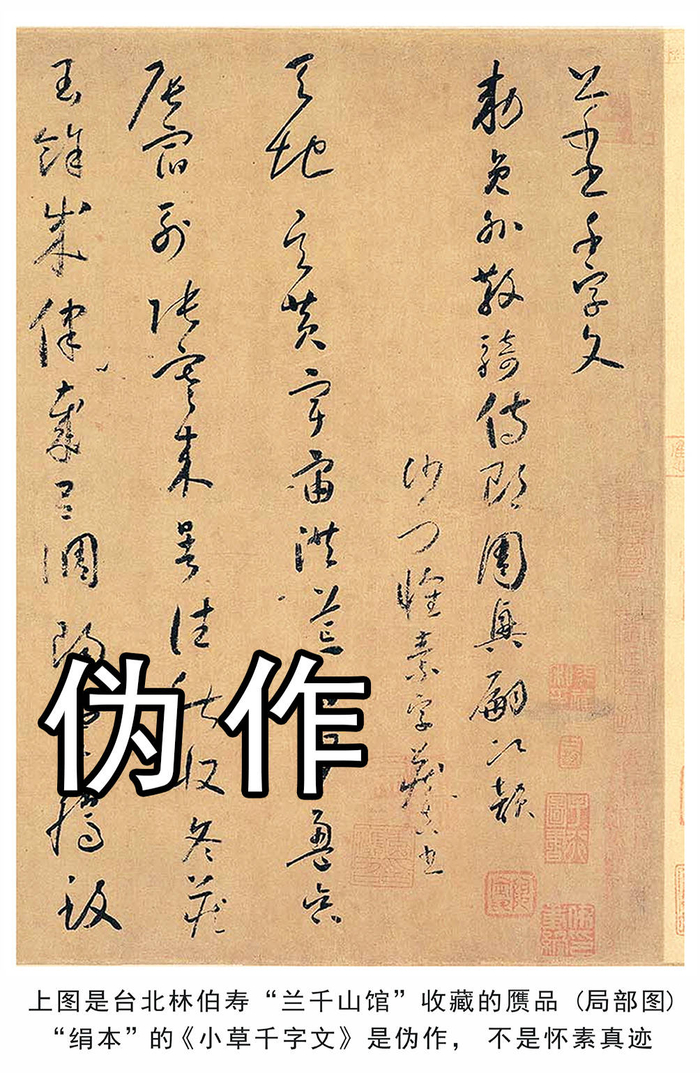 千字文
勅員外散騎侍郎周興嗣次韻
沙門懷素字藏真書
天地玄黃宇宙洪荒日月盈昃
辰宿列張寒來暑往秋收冬藏
閏餘成律歲呂調陽雲騰致
伪作
上图是台北林伯寿“兰千山馆”收藏的赝品(局部图)
“绢本”的《小草千字文》是伪作， 不是怀素真迹